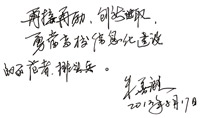 再接再励，创新进取，
勇当高校信息化建设
的示范者、排头兵。
2013年5月17日